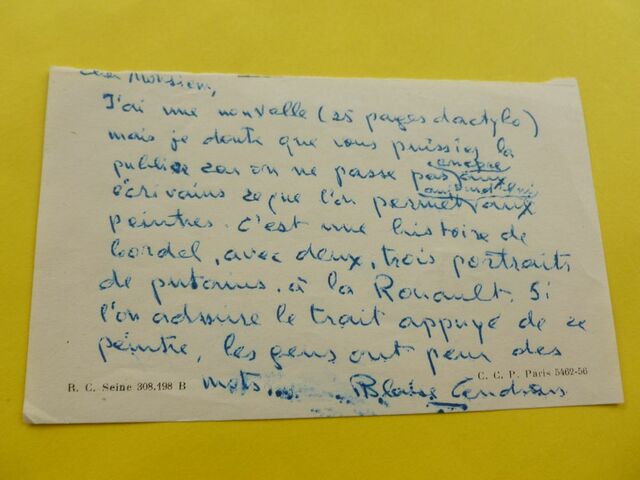 Cher Monsieur,
J'ai une nouvelle (25 pages dactylo)
mais je doute que vous puissiez la
publier car on ne passe pas encore aux
écrivains ce que l'on permet aujourd'hui aux
peintres. C'est une histoire de
bordel, avec deux, trois portraits
de putains, à la Rouault. Si
l'on admire le trait appuyé de ce
peintre, les gens ont peur des
mots... Blaise Cendrars
R. C. Seine 308.198 B
C. C. P. Paris 5462-56